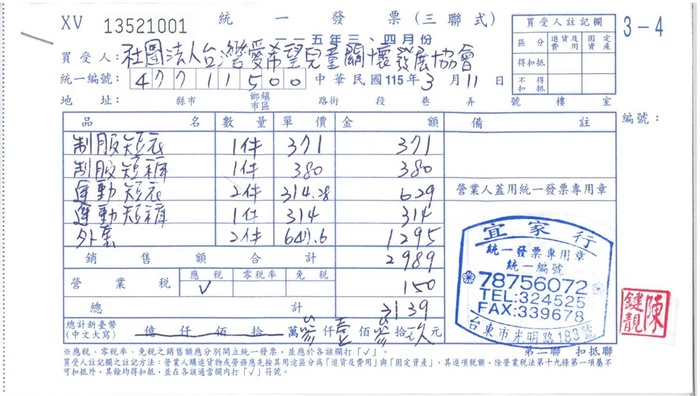 XV 13521001 統一發票(三聯式) 3-4
一一五年三、四月份
買受人:社團法人台灣愛希望兒童關懷發展協會
統一編號 47711500 中華民國115年3月11日
地址: 縣市 鄉鎮市區 路街 段 巷 弄 號 樓 室
買受人註記欄
區分 進貨及費用 固定資產
得扣抵
不得扣抵
編號:
品名 數量 單價 金額 備註
制服短衣 1件 371 371
制服短褲 1件 380 380
運動短衣 2件 314.28 629
運動短褲 1件 314 314
外套 2件 647.6 1295
營業人蓋用統一發票專用章
銷售額合計 2989
營業稅 應稅 零稅率 免稅 150
√
總計 3139
總計新臺幣(中文大寫) 億 仟 佰 拾 萬 參 仟 壹 佰 參 拾 玖 元
宜家行
統一發票專用章
統一編號
78756072
TEL:324525
FAX:339678
台東市光明路183號
陳鍵靚
※應稅、零稅率、免稅之銷售額應分別開立統一發票,並應於各該欄打「√」。
第一聯 扣抵聯
買受人註記欄之註記方法:營業人購進貨物或勞務應先按其用途區分為「進貨及費用」與「固定資產」,其進項稅額,除營業稅法第十九條第一項屬不
可扣抵外,其餘均得扣抵,並在各該適當欄內打「√」符號。